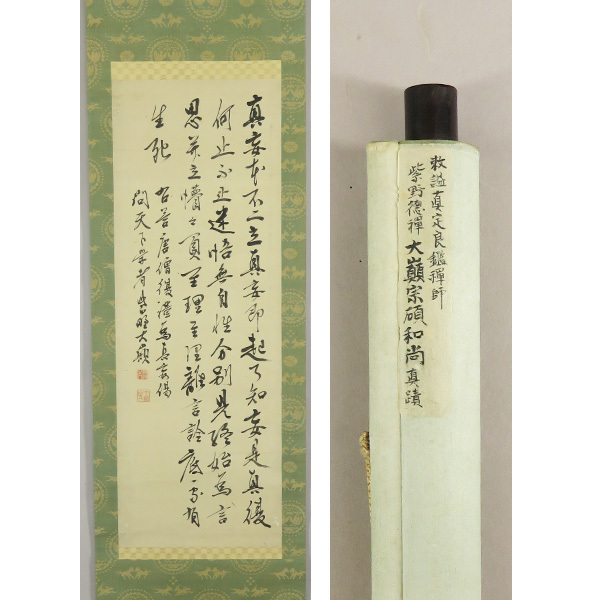 真妄本不二立真妄即起了知妄是真後
何止不止迷悟無自性分別見終始為言
思并立懵々至理至理離言詮底
生死
唐僧復禮為真妄偈
問天下学者紫野大顛
敕諡真定良鑑禪師
紫野德禪大巓宗碩和尚真蹟